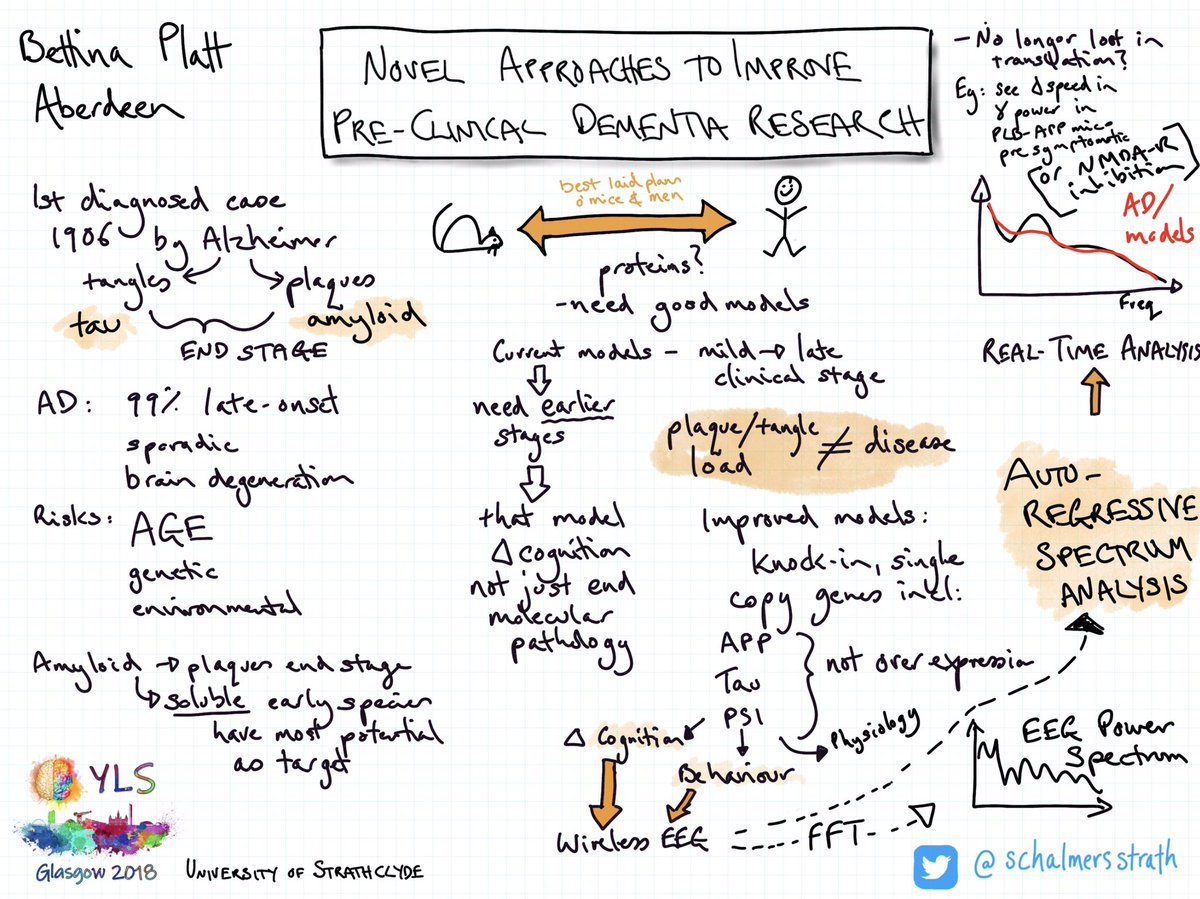 Bettina Platt
Aberdeen
NOVEL APPROACHES TO IMPROVE
PRE-CLINICAL DEMENTIA RESEARCH
- No longer lost in
translation?
Eg: see Δ speed in
γ power in
PLB-APP mice
pre symptomatic
[or NMDA-R
inhibition]
AD/
models
Freq
REAL-TIME ANALYSIS
AUTO-
REGRESSIVE
SPECTRUM
ANALYSIS
1st diagnosed case
1906 by Alzheimer
tangles plaques
tau amyloid
END STAGE
AD: 99% late-onset
sporadic
brain degeneration
Risks: AGE
genetic
environmental
Amyloid → plaques end stage
↳ soluble early species
have most potential
as target
best laid plans
o' mice & men
proteins?
- need good models
Current models - mild → late
clinical stage
need earlier
stages
that model
Δ cognition
not just end
molecular
pathology
plaque/tangle
load ≠ disease
Improved models:
Knock-in, single
copy genes incl:
APP
Tau
PS1
not over expression
Δ Cognition
Behaviour
Physiology
Wireless EEG
FFT
EEG Power
Spectrum
YLS
Glasgow 2018
UNIVERSITY OF STRATHCLYDE
@schalmersstrath